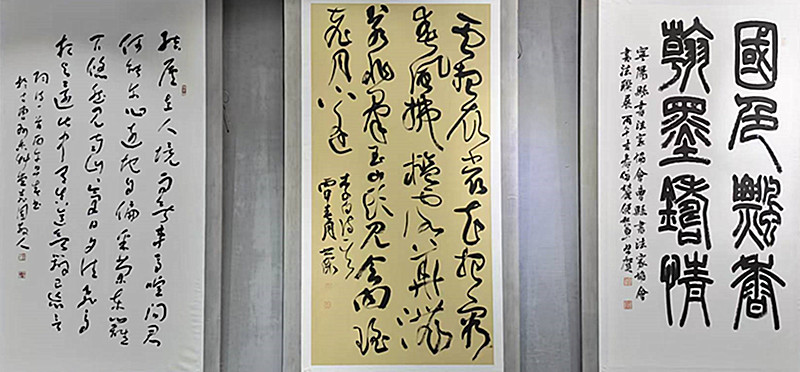 結廬在人境而無車馬喧問君
何能尔心遠地自偏采菊東籬
下悠然見南山山氣日夕佳飛鳥
相與還此中有真意欲辨已忘言
雲想衣裳花想容
春風拂檻露華濃
若非群玉山頭見會向瑤
臺月下逢
李白詩一首
國色飄香
翰墨鑄情
寧陽縣書法家協會曹縣書法家協會
書法聯展丙午